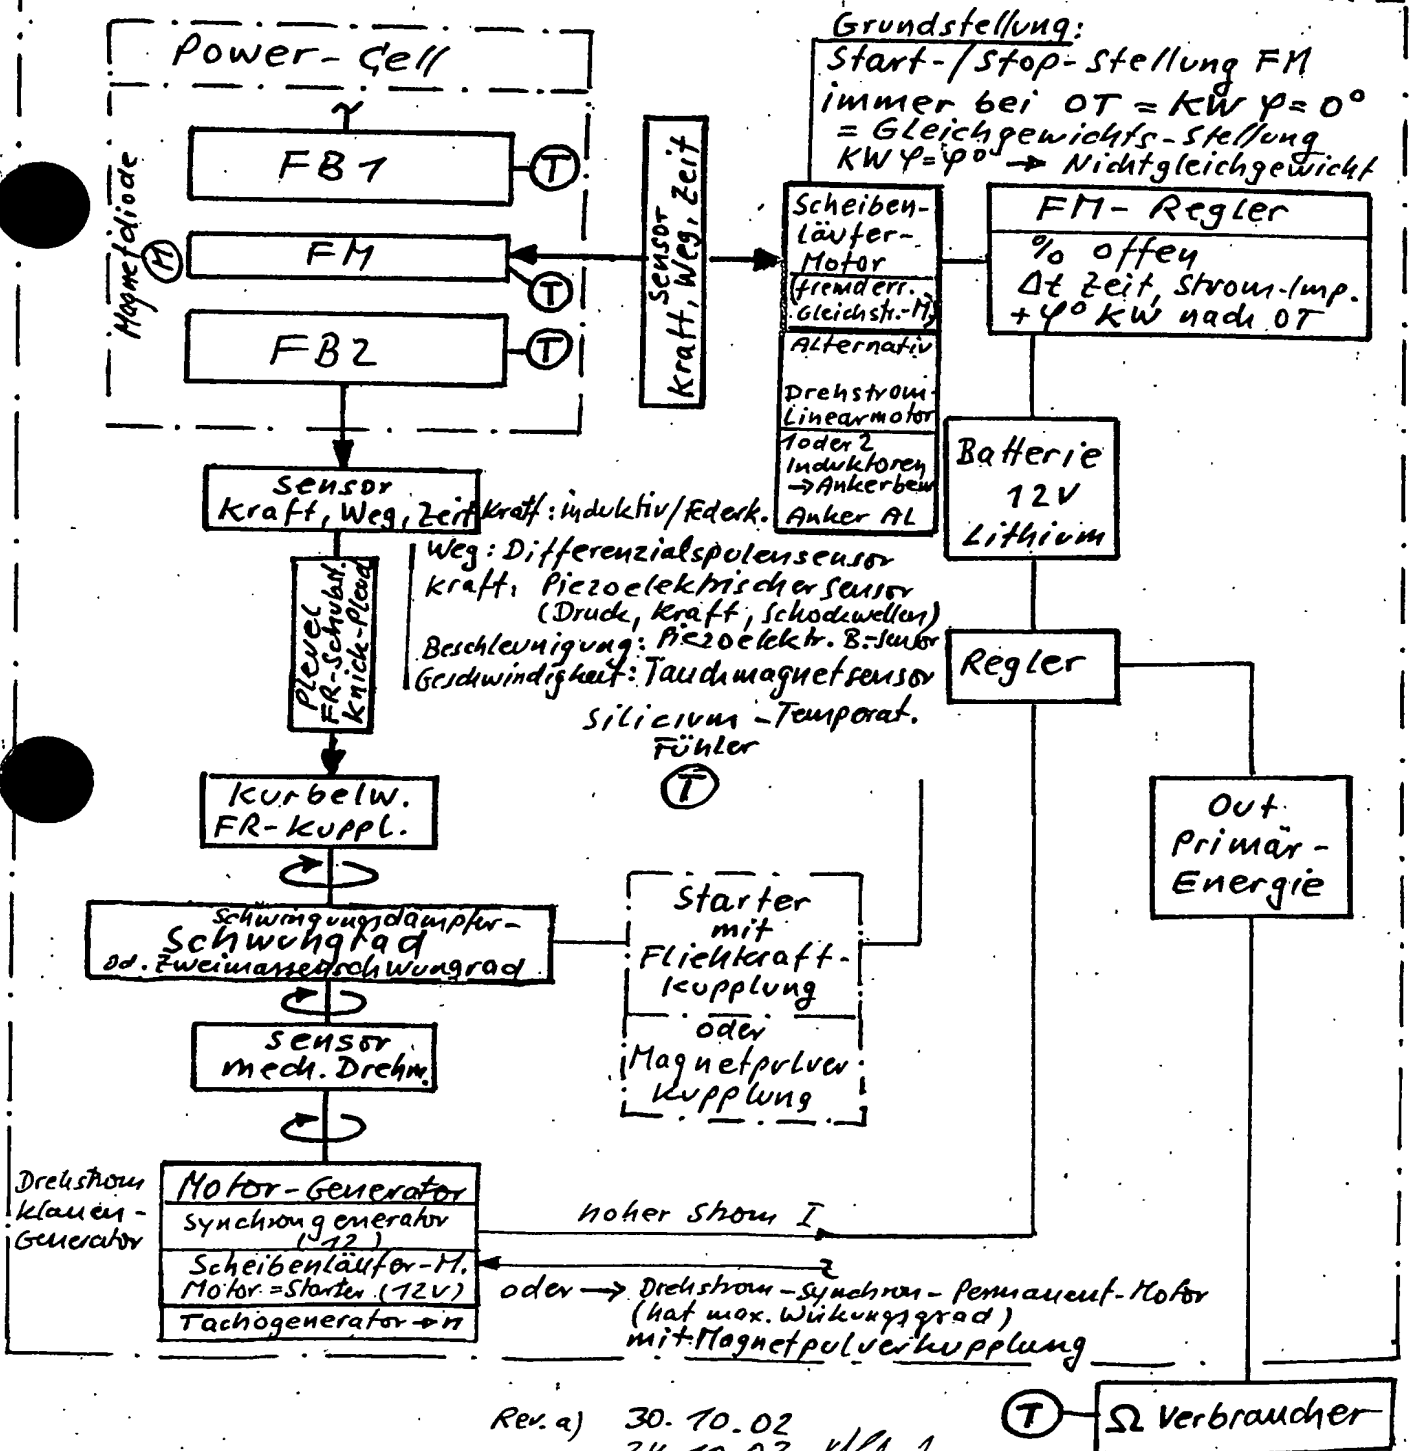 Power-Cell
Grundstellung:
Start-/Stop-Stellung FM
immer bei OT = KW φ=0°
= Gleichgewichts-Stellung
KW φ=φ° → Nichtgleichgewicht
Magnetdiode
M
FB1
T
FM
T
FB2
T
Sensor
Kraft, Weg, Zeit
Scheiben-
läufer-
Motor
(fremderr.
Gleichstr.-M.)
Alternativ
Drehstrom-
Linearmotor
1 oder 2
Induktoren
→ Ankerbew
Anker AL
FM-Regler
% offen
Δt Zeit, Strom-Imp.
+φ° KW nach OT
Batterie
12V
Lithium
Regler
Out
Primär-
Energie
Sensor
Kraft, Weg, Zeit
Kraft: induktiv/Federk.
Weg: Differenzialspulensensor
Kraft: Piezoelektrischer Sensor
(Druck, Kraft, Schockwellen)
Beschleunigung: Piezoelektr. B.-Sensor
Geschwindigkeit: Tauchmagnetsensor
Silicium-Temperat.
Fühler
T
Pleuel
FR-Schubst.
Knick-Pleuel
Kurbelw.
FR-Kuppl.
Schwingungsdämpfer-
Schwungrad
od. Zweimassenschwungrad
Starter
mit
Fliehkraft-
kupplung
oder
Magnetpulver
Kupplung
Sensor
mech. Drehm.
Drehstrom
Klauen-
Generator
Motor-Generator
Synchrongenerator
(12)
Scheibenläufer-M.
Motor=Starter (12V)
Tachogenerator → n
hoher Strom I
oder → Drehstrom-Synchron-Permanent-Motor
(hat max. Wirkungsgrad)
mit Magnetpulverkupplung
T
Ω Verbraucher
Rev. a) 30.10.02